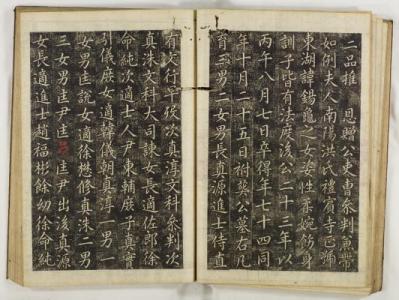 二品推 恩贈公吏曹參判兼帶
如例夫人南陽洪氏禮賓寺正
東湖諱錫龜之女姿性柔婉飭身
訓子皆有法度後公二十三年以
丙午八月七日卒得年七十四同
年十月二十五日祔葬公墓右凡
育三男二女男長真源進士侍直
有文行早歿次真淳文科參判次
真洙文科大司諫女長適佐郎徐
命純次適士人尹東輔庶子真實
引儀庶女適韓儀朝真淳一男一
女男匡說女適徐懋修真洙二男
三女男匡尹匡呂匡尹出後真源
女長適進士趙福彬餘幼徐命純